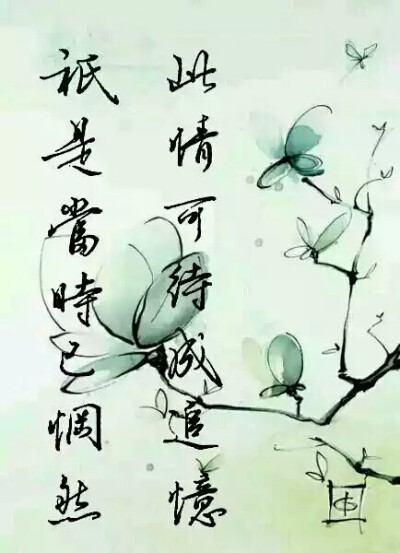 此情可待成追憶
祇是當時已惘然